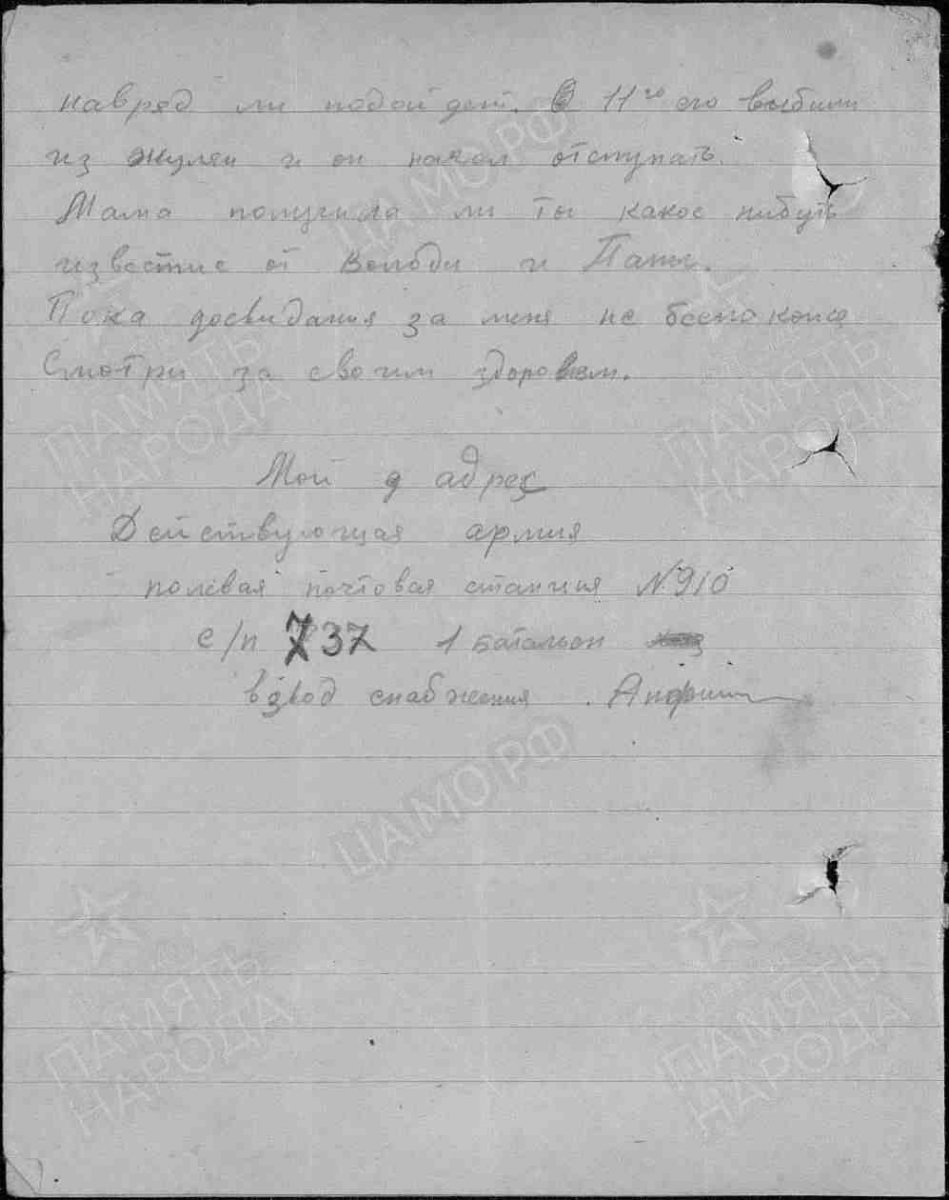 навряд ли подойдет. В 11го его выбили
из Жулян и он начал отступать.
Мама получила ли ты какое нибуть
известие от Володи и Папы.
Пока досвидания за меня не беспокойся
Смотри за своим здоровьем.
Мой адрес
Действующая армия
полевая почтовая станция №910
с/п 737 1 батальон
взвод снабжения
ЦАМО РФ
ПАМЯТЬ
НАРОДА
ПАМЯТЬ
НАРОДА
ЦАМО РФ
ПАМЯТЬ
НАРОДА
ПАМЯТЬ
НАРОДА